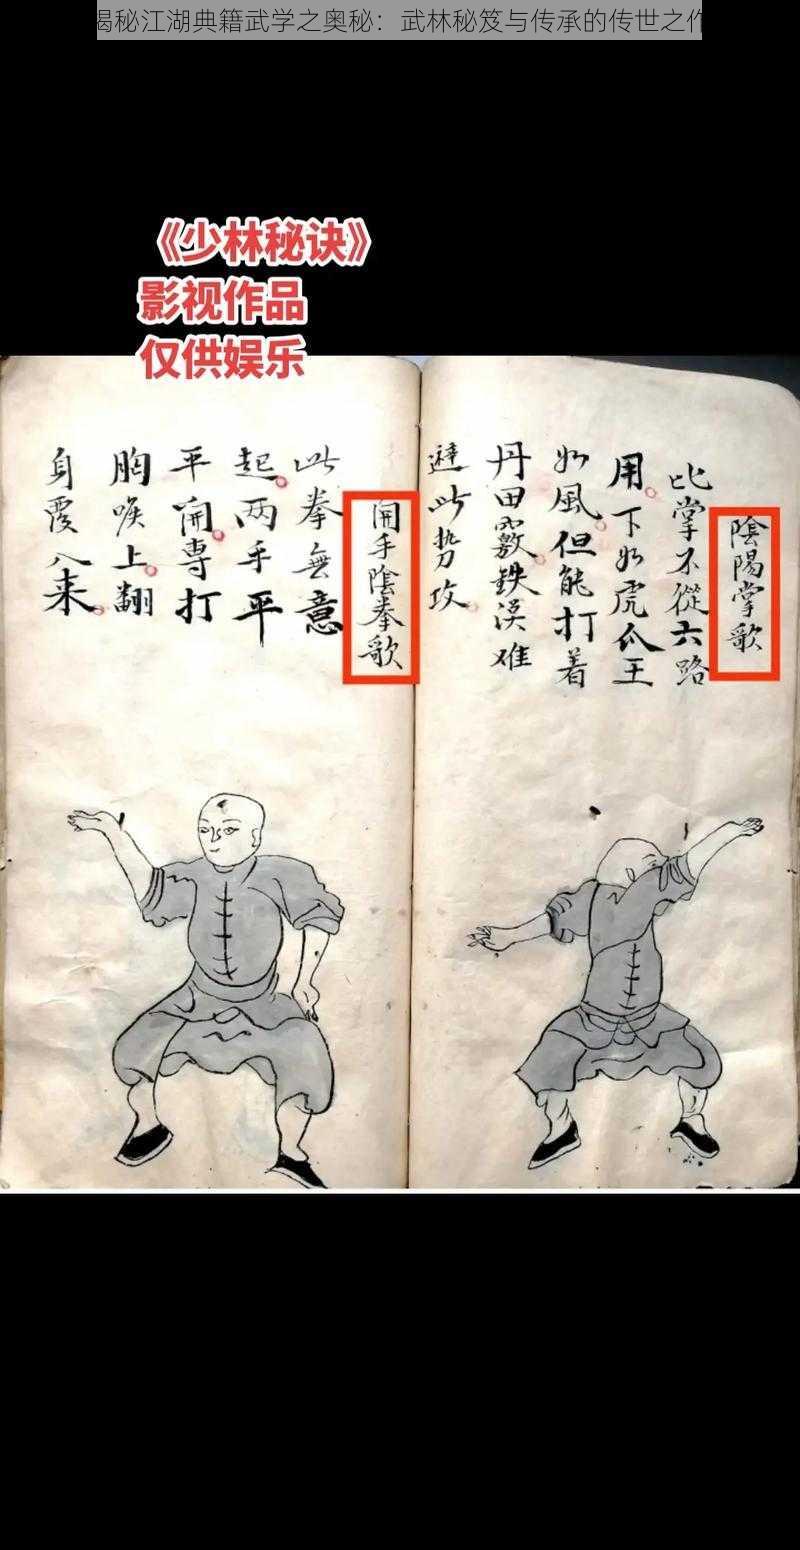 揭秘江湖典籍武学之奥秘：武林秘笈与传承的传世之作
《少林秘诀》
影视作品
仅供娱乐
陰陽掌歌
此掌不從六路
用下如虎爪王
如風但能打着
丹田竅鉄漢难
避此势攻
開手陰拳歌
此拳無意
起两手平
平開專打
胸喉上翻
身覆八来